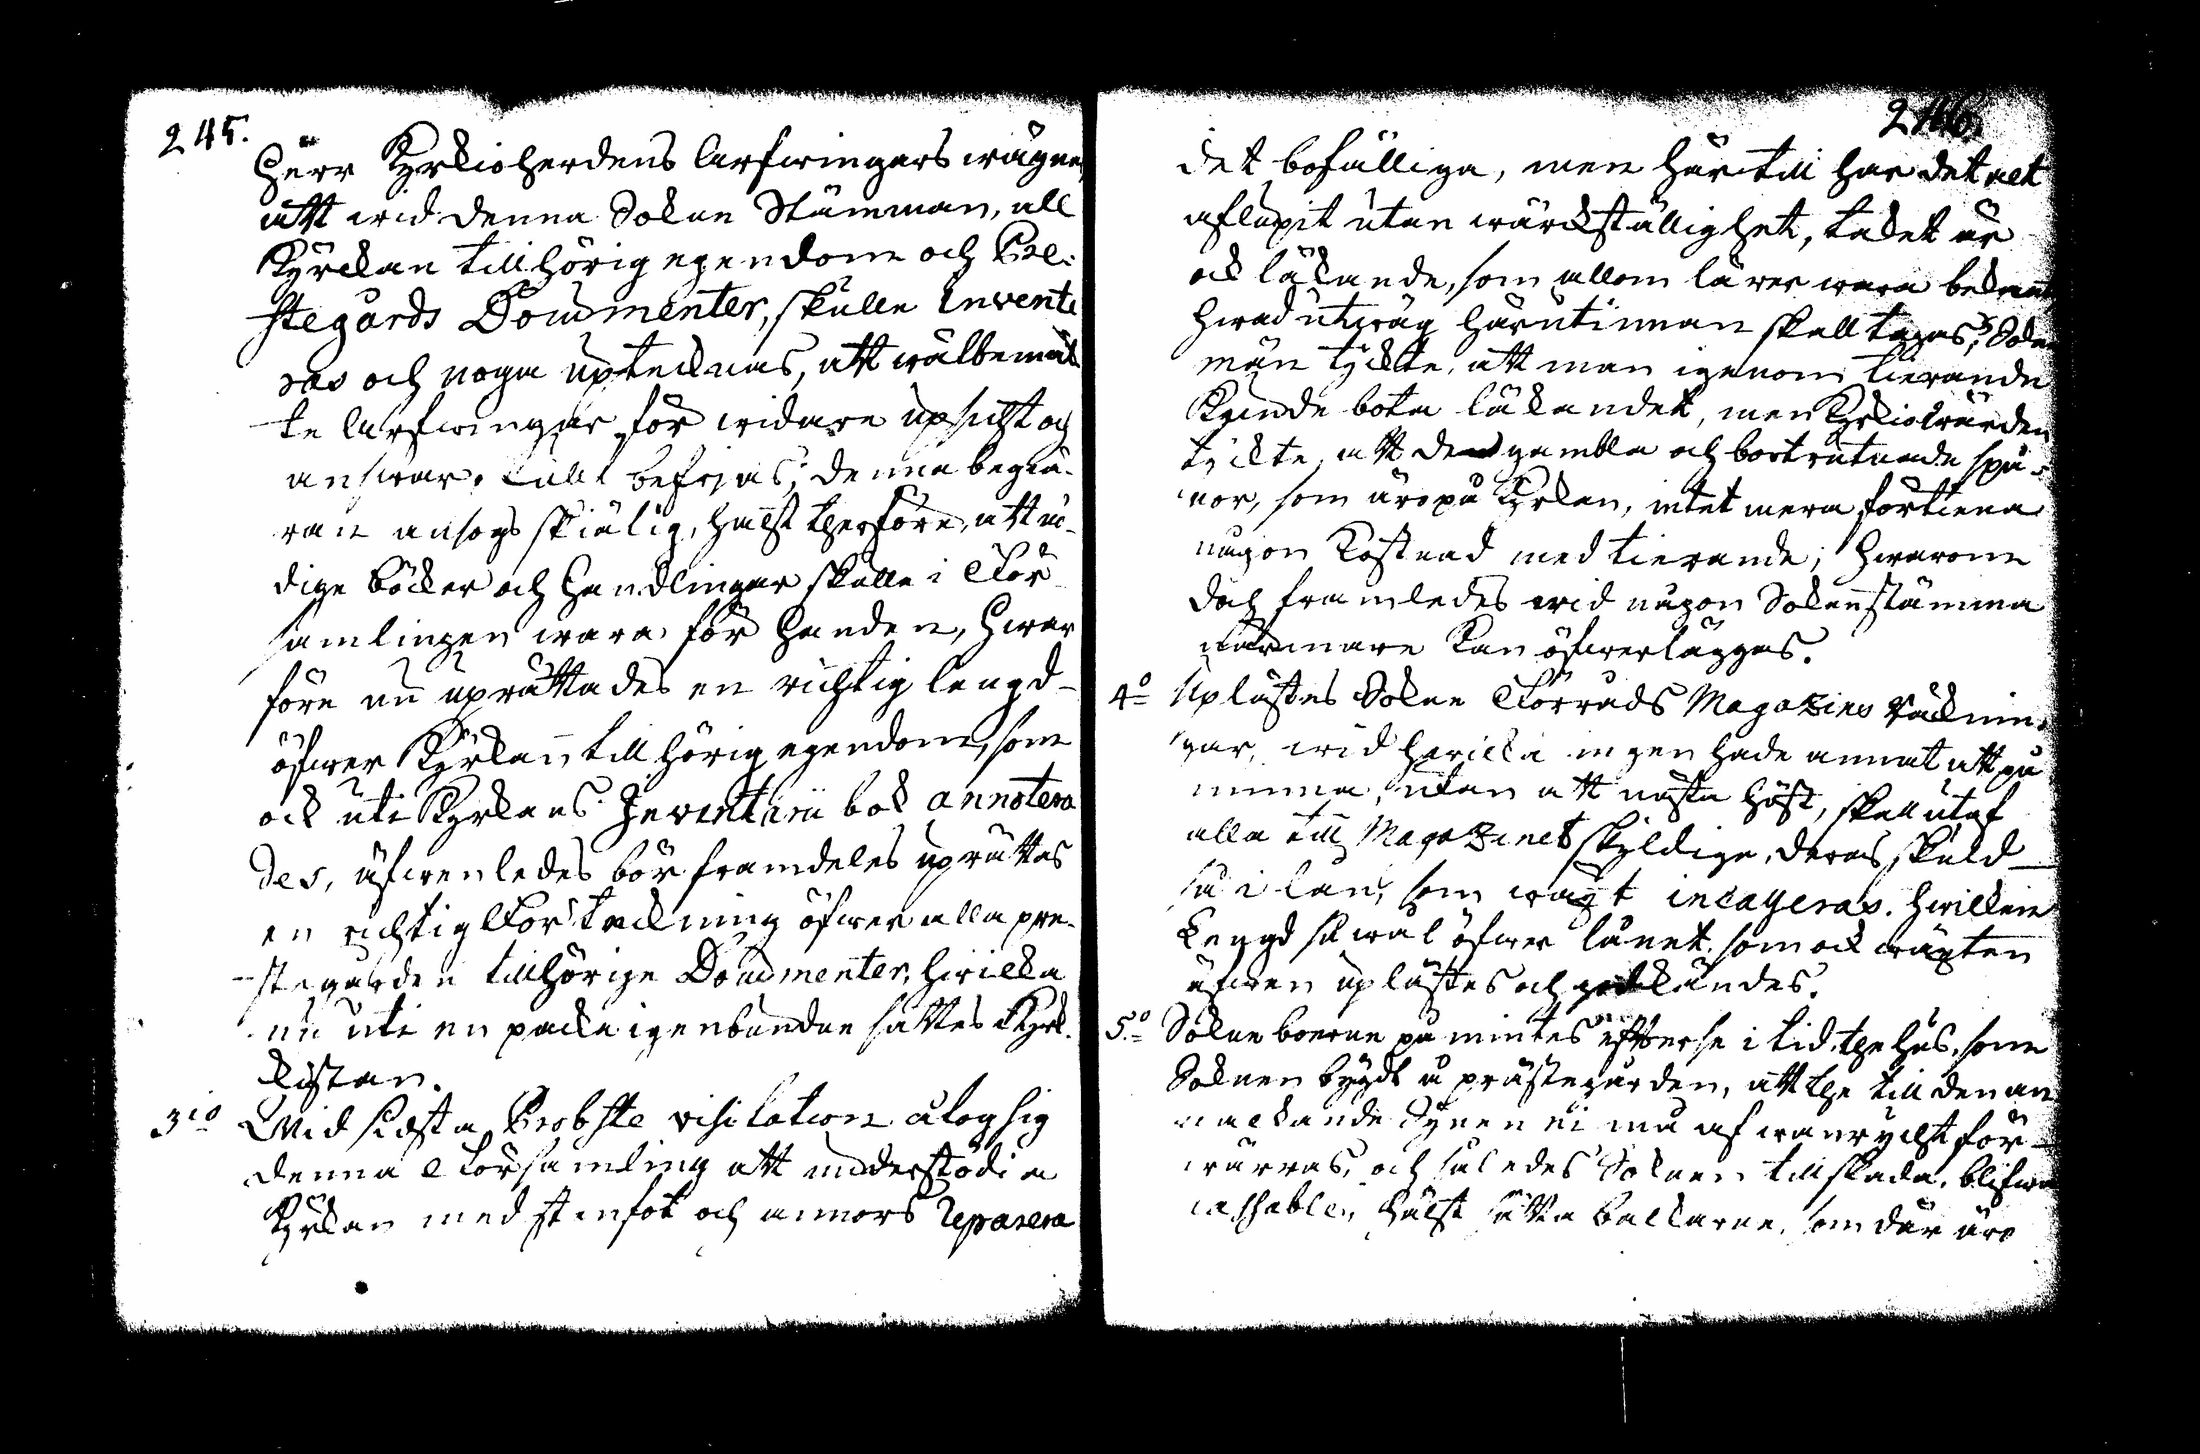 245.
Herr Kyrkioherdens Arfwingars wägnar,
att wid denna Sokne Stämman, all
Kyrckan tillhörig egendom och Pre-
stegårds Documenter, skulle Invente
ras och noga uptecknas, att wälbemäl
te Arfwingar för widare upsicht och
answar. måtte befrjas; denna begiä-
ran ansogs skiälig, hälst therföre, att nö-
dige böcker och handlingar skulle i För
samlingen wara för handen, hwar
före nu uprättades en richtig lengd
öfwer Kyrckan tillhörig egendom, som
ock uti Kyrckans Inventarii bok annotera
des, äfwenledes bör framdeles uprättas
en richtig Förteckning öfwer alla pre-
stegården tillhörige Documenter, hwilka
nu uti en packa igenbundne sattes i Kyrk-
kistan.
3io Wid sidsta Probste visitation åtog sig
denna Församling att understödi a
Kyrckan med stenfot och annors Reparera
246.
det bofälliga, men härtill har det alt
aflupit utan wärckställighet, taket är
ock läkande, som allom lärer wara bekant
hwad utwäg härutinnan skall tagas? Sokne
män tyckte, att man igenom tierande
kunde bota läkandet, men Kyrkiowärden
tyckte att de gambla och bortrutnade spå-
nor, som äro på Kyrkan, intet mera förtiena
nogon kostnad med tierande; hwarom
doch framledes wid någon Sokenstämma
närmare kan öfwerläggas.
4o Uplästes Sokne Förråds Magazins Räcknin-
gar, wid hwilka ingen hade annat att på
minna, utan att nästa höst, skall utaf
alla till Magazinet skyldige, deras skuld
så i lån, som wägt incasseras. hwilken
Lengd så wäl öfwer lånet, som ock wägten
äfwen uplästes och godkändes.
5o Sokne boerne påmintes efterse i tid, the hus, som
Soknen bygdt å prästegården, att the till den an
nalkande Synen ei må af wanrycht för-
wärras, och således Soknen till skada, blifwa
cassable, hälst sätta balkarne, som där äro